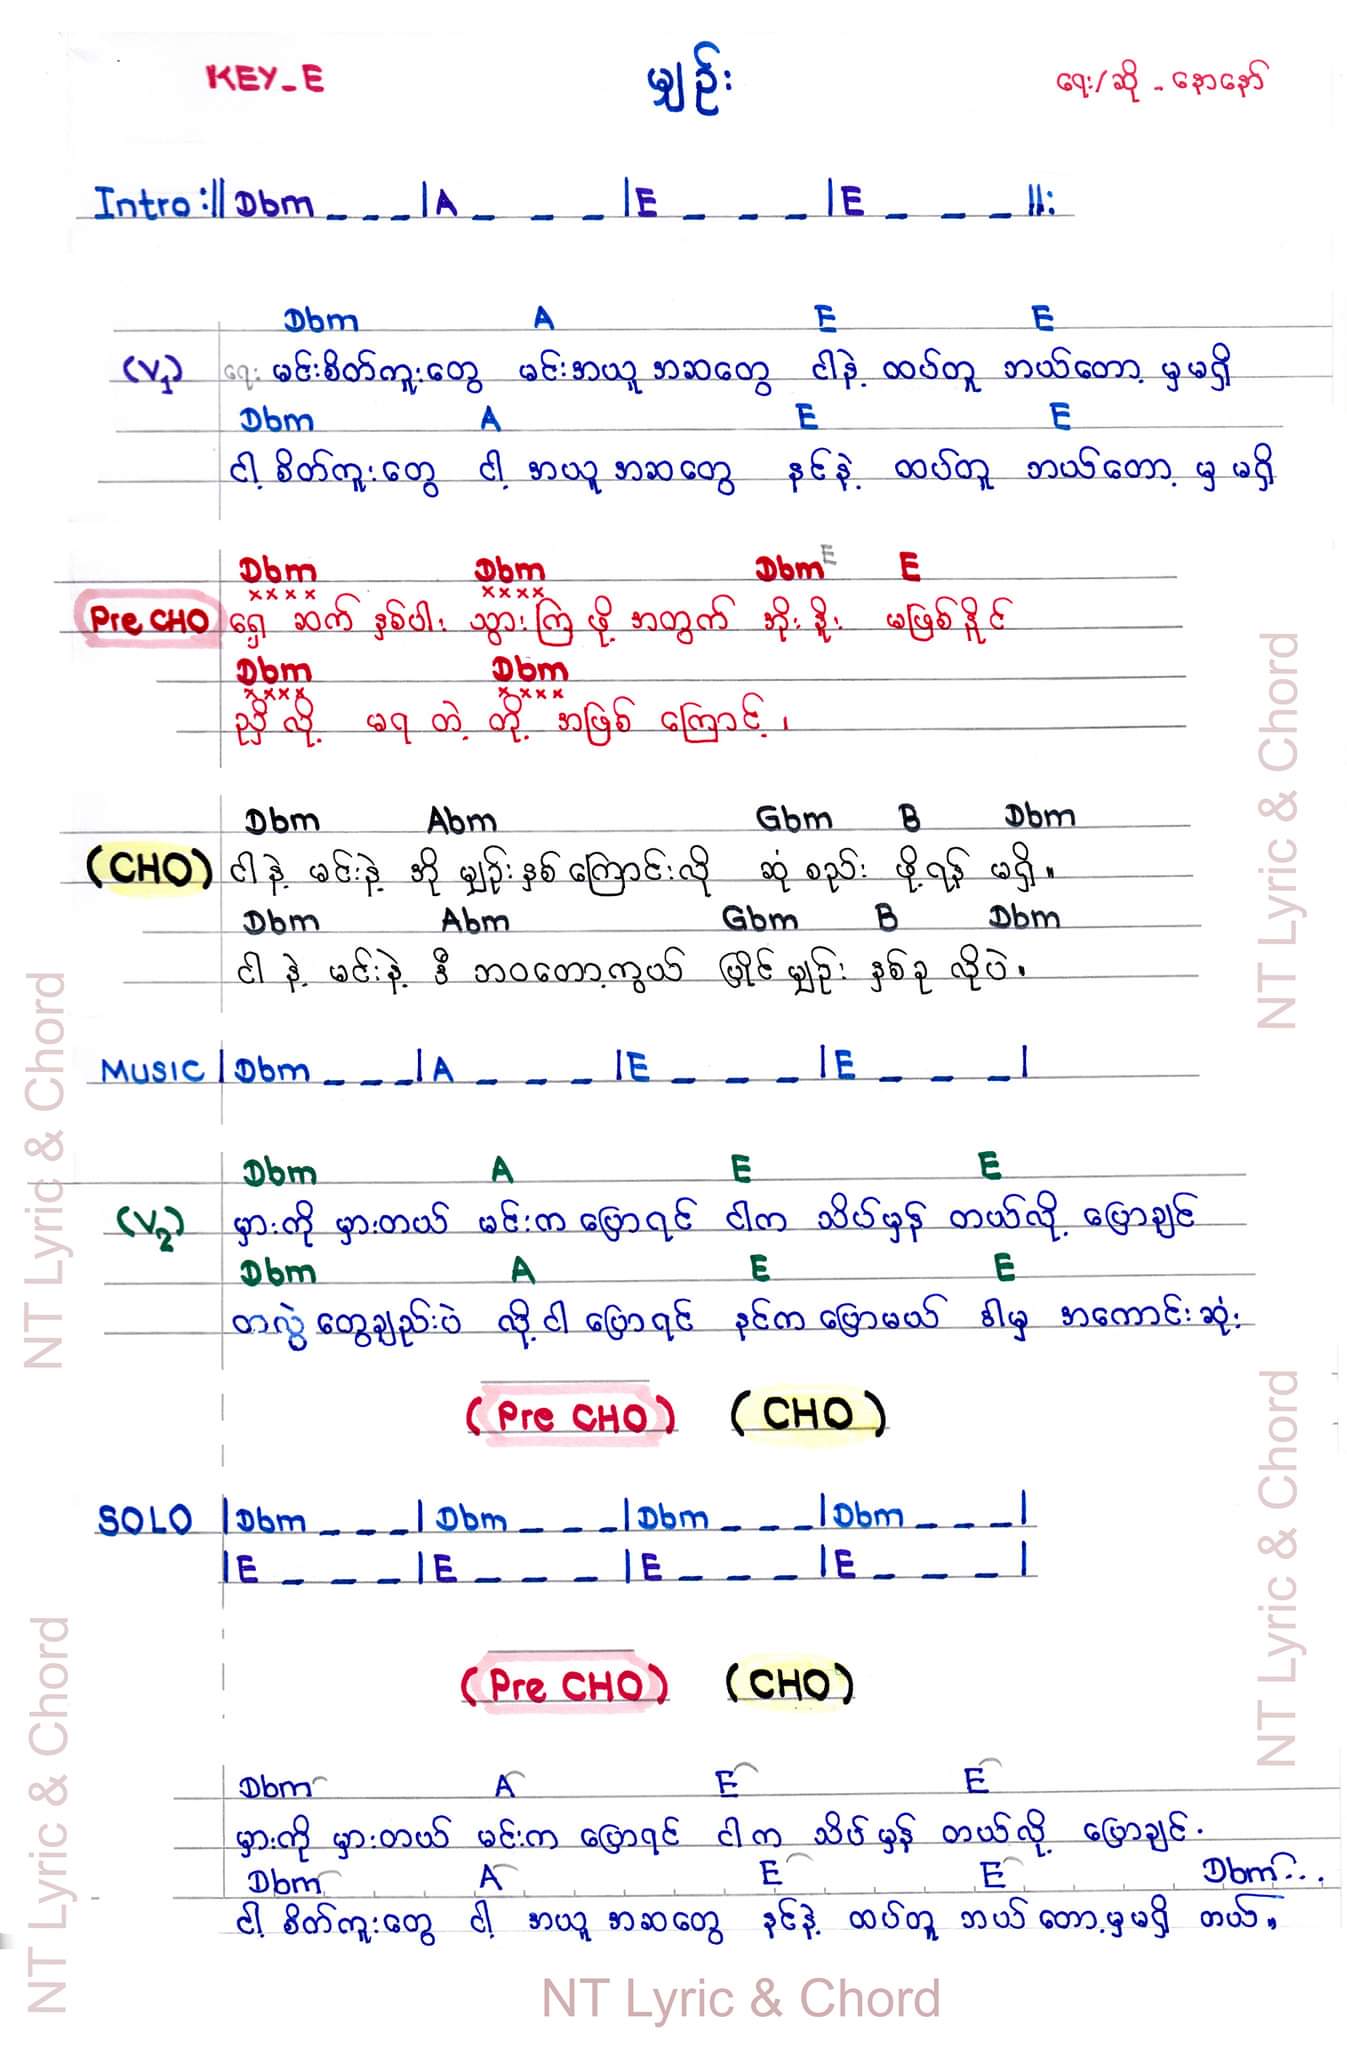 KEY_E မျဉ်း ရေး/ဆို - နောနော်
Intro :|| Dbm _ _ _ | A _ _ _ | E _ _ _ | E _ _ _ ||:
Dbm A E E
(V1) ရေး မင်းစိတ်ကူးတွေ မင်းအယူအဆတွေ ငါနဲ့ ထပ်တူ ဘယ်တော့ မှ မရှိ
Dbm A E E
ငါ့ စိတ်ကူးတွေ ငါ့ အယူအဆတွေ နင်နဲ့ ထပ်တူ ဘယ်တော့ မှ မရှိ
Dbm Dbm Dbm E E
xxxx xxxx
Pre CHO ရှေ့ ဆက် နှစ်ပါး သွားကြ ဖို့ အတွက် အိုး မဖြစ်နိုင်
Dbm Dbm
xxxx xxxx
ညှိ လို့ မရ တဲ့ တို့ အဖြစ် ကြောင့်၊
Dbm Abm Gbm B Dbm
(CHO) ငါ နဲ့ မင်းနဲ့ အို မျဉ်းနှစ်ကြောင်းလို ဆုံ စည်း ဖို့ရန် မရှိ။
Dbm Abm Gbm B Dbm
ငါ နဲ့ မင်းနဲ့ ဒီ ဘဝတော့ကွယ် ပြိုင်မျဉ်း နှစ်ခု လိုပဲ။
MUSIC | Dbm _ _ _ | A _ _ _ | E _ _ _ | E _ _ _ |
Dbm A E E
(V2) မှားကို မှားတယ် မင်းက ပြောရင် ငါက သိပ်မှန် တယ်လို့ ပြောချင်
Dbm A E E
တလွဲ တွေချည်းပဲ လို့ ငါ ပြောရင် နင်က ပြောမယ် ဒါမှ အကောင်းဆုံး
(Pre CHO) (CHO)
SOLO | Dbm _ _ _ | Dbm _ _ _ | Dbm _ _ _ | Dbm _ _ _ |
| E _ _ _ | E _ _ _ | E _ _ _ | E _ _ _ |
(Pre CHO) (CHO)
Dbm A E E
မှားကို မှားတယ် မင်းက ပြောရင် ငါက သိပ်မှန် တယ်လို့ ပြောချင်.
Dbm A E E Dbm...
ငါ့ စိတ်ကူးတွေ ငါ့ အယူအဆတွေ နင်နဲ့ ထပ်တူ ဘယ်တော့မှမရှိ တယ်။
NT Lyric & Chord
NT Lyric & Chord
NT Lyric & Chord
NT Lyric & Chord
NT Lyric & Chord